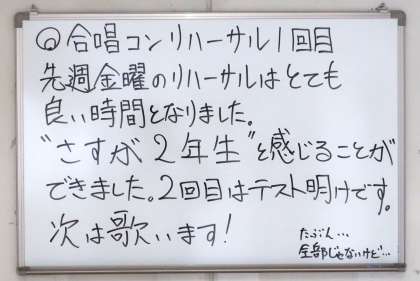 ◎合唱コンリハーサル1回目
先週金曜のリハーサルはとても
良い時間となりました。
“さすが2年生”と感じることが
できました。2回目はテスト明けです。
次は歌います！
たぶん…
全部じゃないけど…